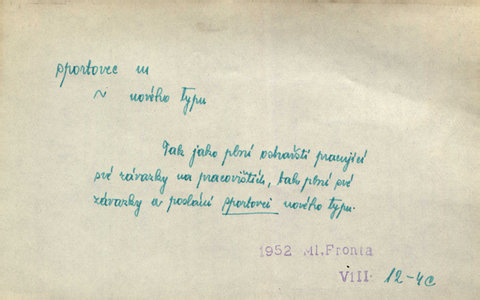 sportovec m
~ nového typu
Tak jako plní ostravští pracující
své závazky na pracovištích, tak plní své
závazky a poslání sportovci nového typu.
1952 Ml.Fronta
VIII. 12-4c